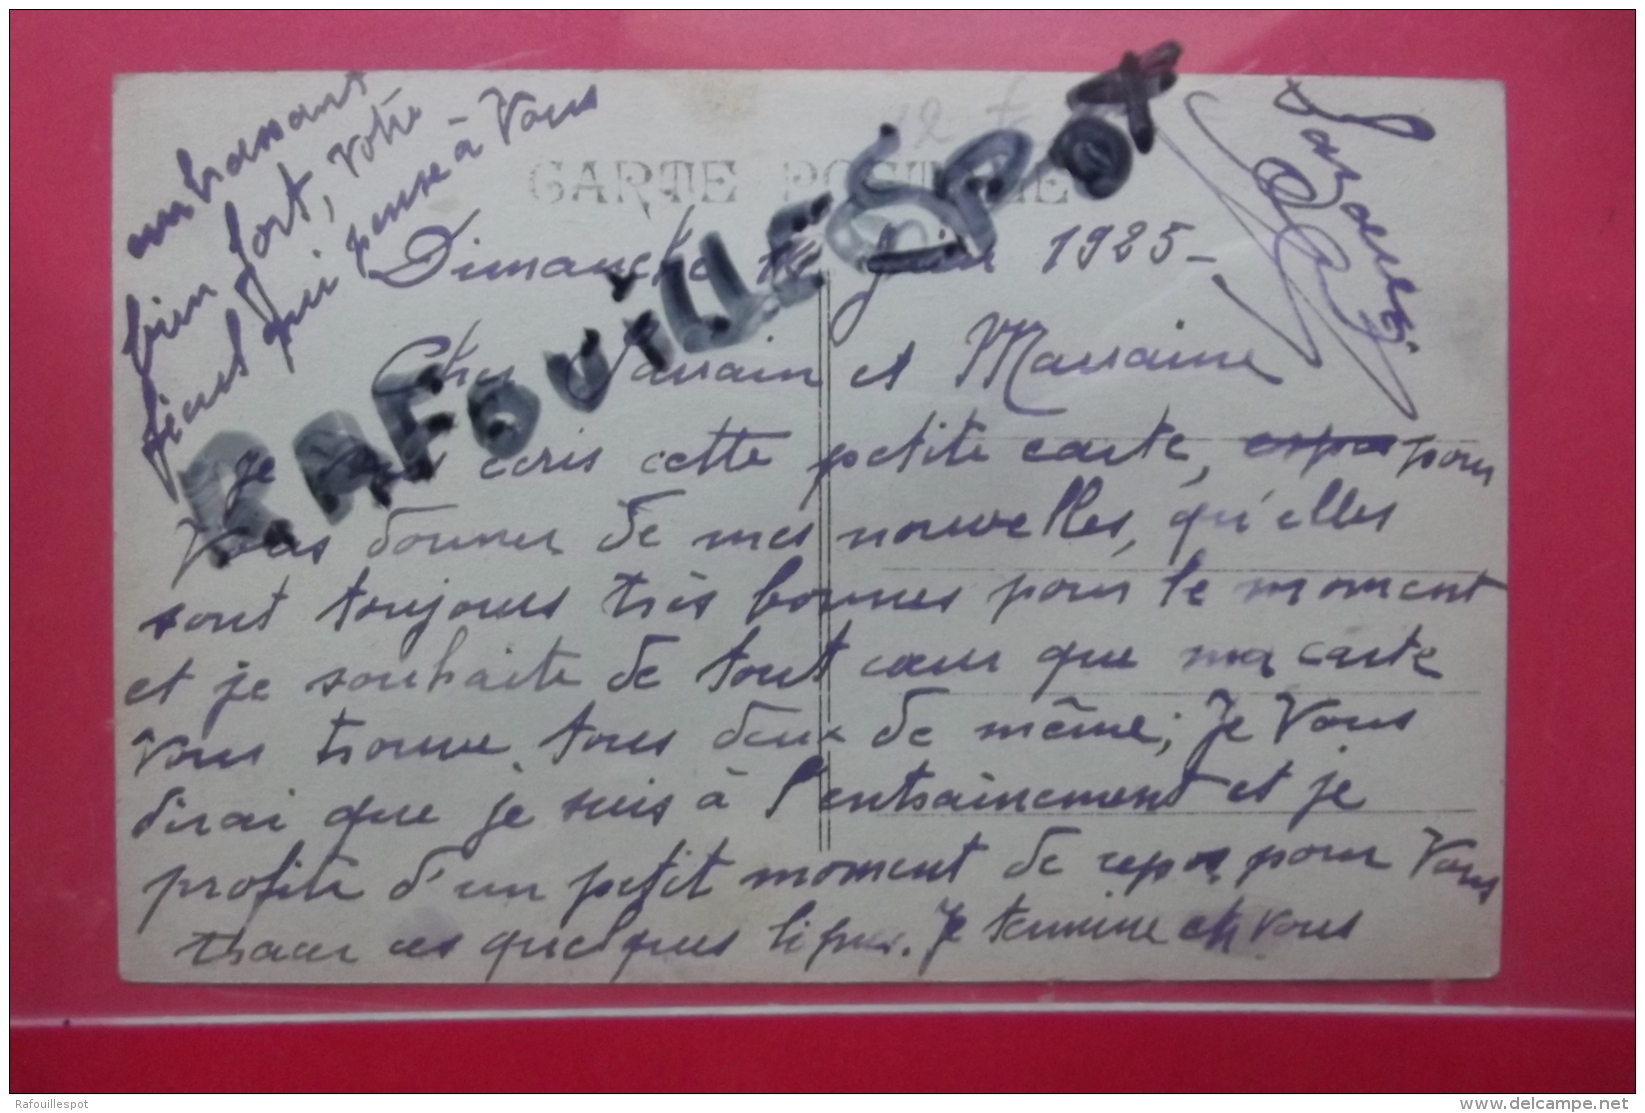 CARTE POSTALE
RAFOUILLESPOT
Dimanche Juin 1925 -
Cher Parrain et Marraine
je vous écris cette petite carte, pour
Vous donner de mes nouvelles, qu'elles
sont toujours très bonnes pour le moment
et je souhaite de tout cœur que ma carte
Vous trouve tous deux de même; Je Vous
dirai que je suis à l'entraînement et je
profite d'un petit moment de repos pour Vous
tracer ces quelques lignes. Je termine en vous
embrassant
bien fort, votre
fieul qui pense à Vous
Rafouillespot
www.delcampe.net